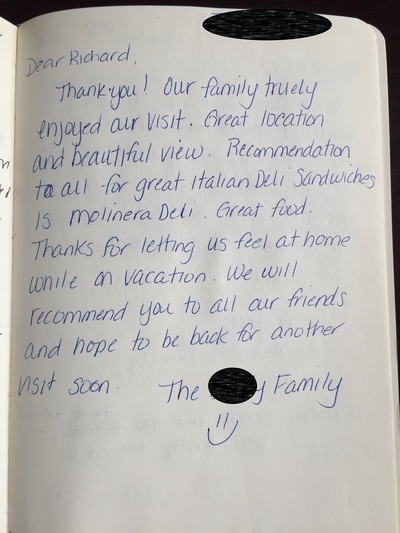 Dear Richard,
Thank-you! Our family truely
enjoyed our visit. Great location
and beautiful view. Recommendation
to all for great Italian Deli Sandwiches
is Molinera Deli. Great food.
Thanks for letting us feel at home
while on vacation. We will
recommend you to all our friends
and hope to be back for another
visit soon. The y Family